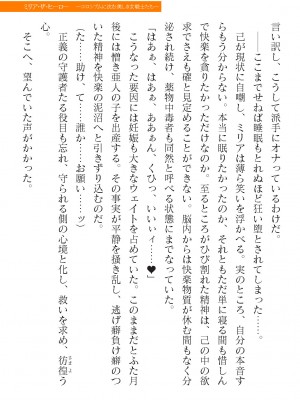 ミリア・ザ・ヒーロー
言い訳し、こうして派手にオナっているわけだ。
――ここまでせねば睡眠もとれぬほど狂い堕とされてしまった……。
己が現状に自嘲し、ミリアは薄ら笑いを浮かべる。実のところ、自分の本音す
らもう分からない。本当に眠りたかったのか、それともただ単に寝る間も惜しん
で快楽を貪りたかっただけなのか。至るところがひび割れた精神は、己の中の欲
求でさえも確と見定めることができない。脳内からは快楽物質が休む間もなく分
泌され続け、薬物中毒者も同然と呼べる状態にまでなっていた。
「はぁぁ、はぁぁ、あああん、くひっ、いいいィ……♥」
こうなった要因には妊娠も大きなウェイトを占めていた。このままだとふた月
後には憎き亜人の子を出産する。その事実が平静を掻き乱し、逃げ癖負け癖のつ
いた精神を快楽の泥沼へと引きずり込むのだ。
（た……助け、て……誰か……お願い……ッ）
正義の守護者たる役目も忘れ、守られる側の心境と化し、救いを求め、彷徨う
心。
そこへ、望んでいた声がかかった。